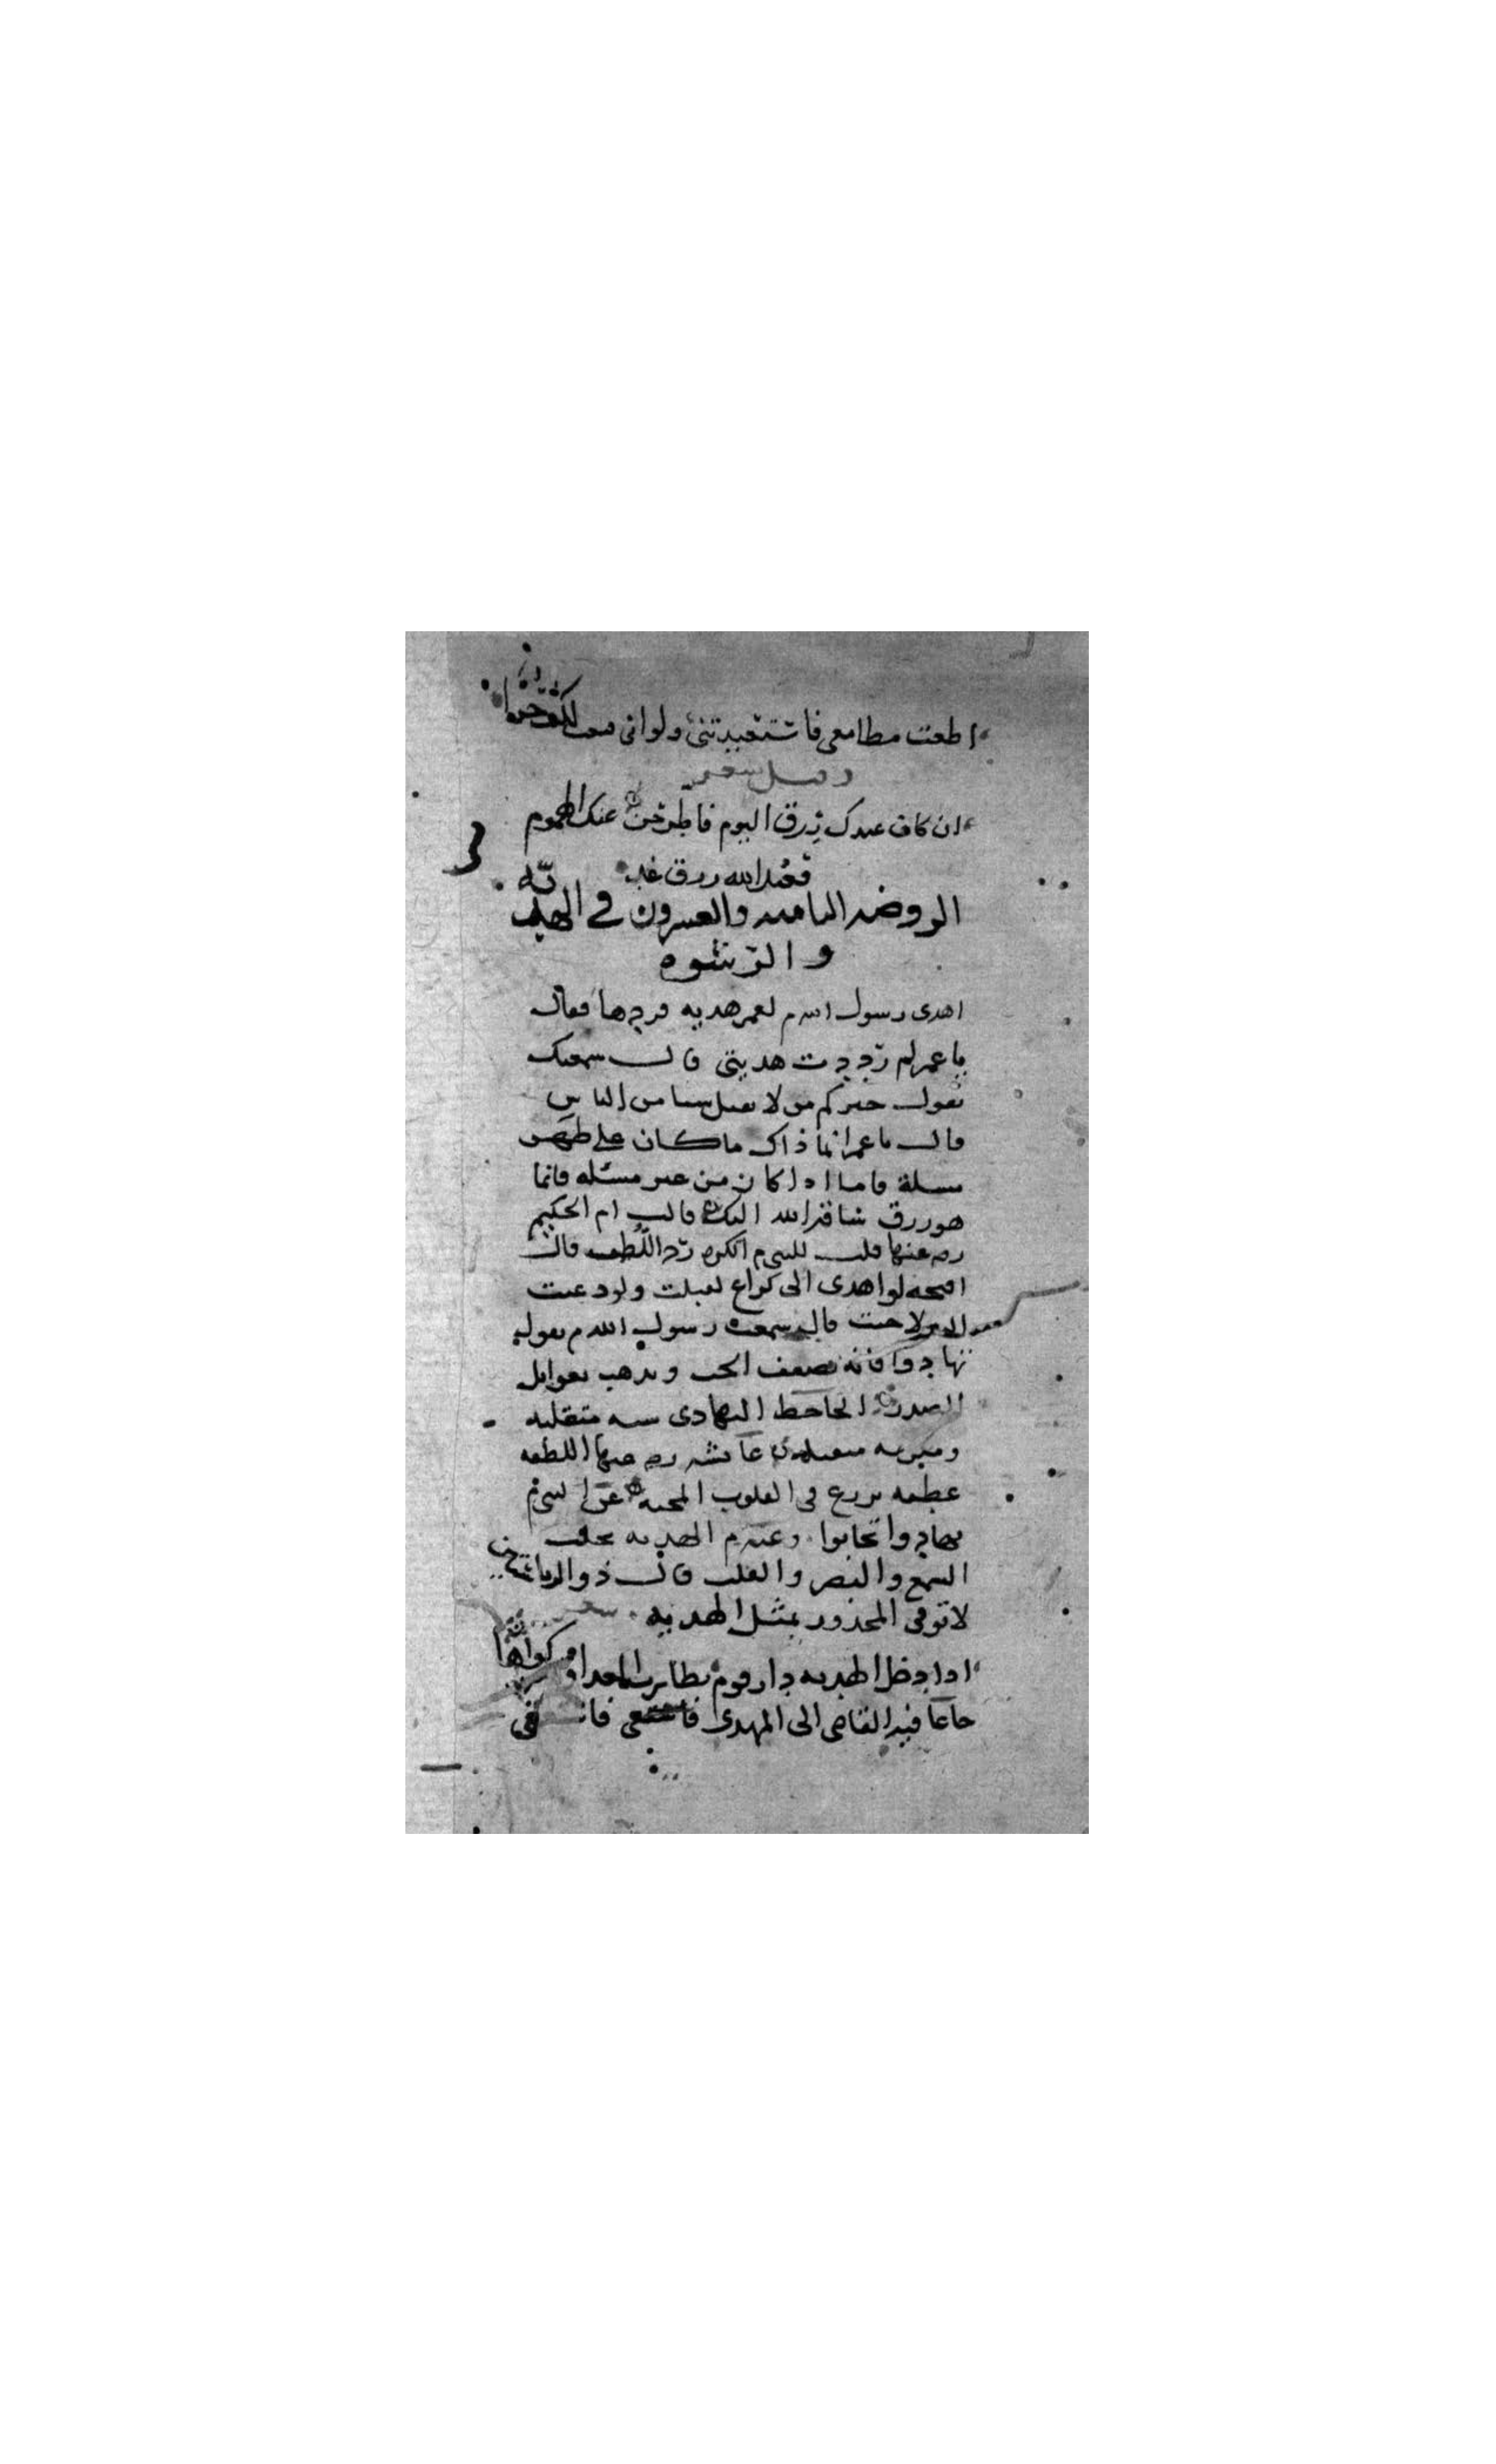 اطعت مطامعى فاستعبدتنى ولو انى قنعت لكنت حرا
وقيل شعر
ان كان عندك رزق اليوم فاطرحن عنك الهموم
فعند الله رزق غد
الروضه الثامنه والعشرون في الهديه
والرشوه
اهدى رسول الله م لعمر هديه فردها فقال
يا عمر لم رددت هديتى قال سمعتك
تقول خيركم من لا يقبل شيا من الناس
قال يا عمر انما ذاك ما كان على ظهر
مسلة فاما اذا كان من غير مسئله فانما
هو رزق ساقه الله اليك قالت ام الحكيم
رض عنها قلت للنبى م اتكره رد اللطف قال
اقبحه لو اهدى الى كراع لقبلت ولو دعيت
لاجبت قالت سمعت رسول الله م يقول
تهادوا فانه يضعف الحب ويذهب بغوايل
الصدر الجاحظ التهادى سنه
عائشه رض عنها اللطفه
عطفه تزرع في القلوب المحبه عن النبى م
تهادوا تحابوا وعنه م الهديه تجلب
السمع والبصر والقلب قال ذو الرياستين
لا توقى المحذور بمثل الهديه شعر
اذا دخل الهديه دار قوم تطايرت من كواها
جاء فيد القاضى الى المهدى فان فى